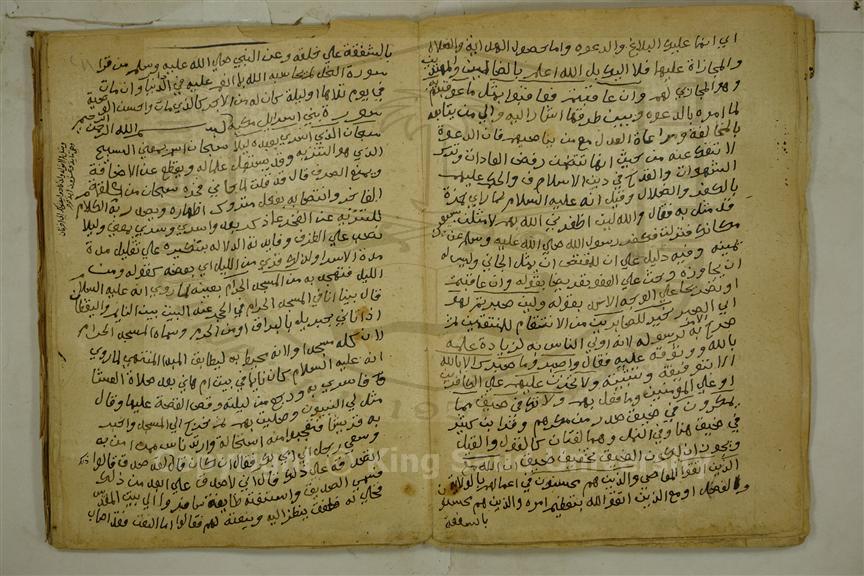 اي انما عليك البلاغ والدعوة واما حصول الهداية والضلال
والمجازاة عليهما فلا اليك بل الله اعلم بالضالين والمهتدين
وهو المجازي لهم وان عاقبتم فعاقبوا بمثل ما عوقبتم به
لما امره بالدعوة وبين طرقها اشار اليه والى من يتابعه
بالمخالفة ومراعاة العدل مع من يناصبهم فان الدعوة
لا تنفك عنه من حيث انها تتضمن رفض العادات وترك
الشهوات والقدح في دين الاسلاف والحكم عليهم
بالكفر والضلال وقيل انه عليه السلام لما راى حمزة
قد مثل به فقال والله لين اظفرني الله بهم لامثلن بسبعين
مكانك فنزلت فكفر رسول الله صلى الله عليه وسلم عن
يمينه وفيه دليل على ان للمقتص ان يماثل الجاني وليس له
ان يجاوزه وحث على العفو تعريضا بقوله وان عاقبتم
وتصريحا على الوجه الاكد بقوله ولين صبرتم لهو
اي الصبر خير للصابرين من الانتقام للمنتقمين ثم
صرح الامر به لرسوله لانه اولى الناس به لزيادة علمه
بالله ووثوقه عليه فقال واصبر وما صبرك الا بالله
الا بتوفيقه وتثبيته ولا تحزن عليهم على الكافرين
او على المؤمنين وما فعل بهم ولا تك في ضيق مما
يمكرون في ضيق صدر من مكرهم وقرا ابن كثير
في ضيق هنا وفي النمل وهما لغتان كالقول والقيل
ويجوز ان يكون الضيق تخفيف ضيق ان الله مع
الذين اتقوا المعاصي والذين هم محسنون في اعمالهم بالولاية
والفضل او مع الذين اتقوا الله بتعظيم امره والذين هم محسنون
بالشفقة
بالشفقة على خلقه وعن النبي صلى الله عليه وسلم من قرا
سورة النحل لم يحاسبه الله بما انعم عليه في الدنيا وان مات
في يوم تلاها او ليلة كان له من الاجر كالذي مات واحسن الوصية
سورة بني اسرائيل مكية بسم الله الرحمن الرحيم
سبحان الذي اسرى بعبده ليلا سبحان اسم بمعنى التسبيح
الذي هو التنزيه وقد يستعمل علما له ويقطع عن الاضافة
ويمنع الصرف قال قد قلت لما جاءني فخره سبحان من علقمة
الفاخر وانتصابه بفعل متروك اظهاره وتصدير الكلام به
للتنزيه عن العجز عما ذكر بعد واسرى وسرى بمعنى وليلا
نصب على الظرف وفايدته الدلالة بتنكيره على تقليل مدة
مدة الاسرا ولذلك قري من الليل اي بعضه كقوله ومن
الليل فتهجد به من المسجد الحرام بعينه لما روي انه عليه السلام
قال بينا انا في المسجد الحرام في الحجر عند البيت بين النايم واليقظان
اذ اتاني جبريل بالبراق او من الحرم وسماه المسجد الحرام
لان كله مسجد او لانه محيط به ليطابق المبدا المنتهى لما روي
انه عليه السلام كان نايما في بيت ام هاني بعد صلاة العشا
فاسري به ورجع من ليلته وقص القصة عليها وقال
مثل لي النبيون وصليت بهم ثم خرج الى المسجد واخبر
به قريشا فتعجبوا منه استحالة وارتد ناس ممن امن به
وسعى رجال الى ابي بكر فقال ان كان قال لقد صدق قالوا
اتصدقه على ذلك قال اني لاصدقه على ابعد من ذلك
فسمي الصديق واستنعته طايفة سافروا الى بيت المقدس
فجلي له فطفق ينظر اليه وينعته لهم فقالوا اما النعت فقد اصاب